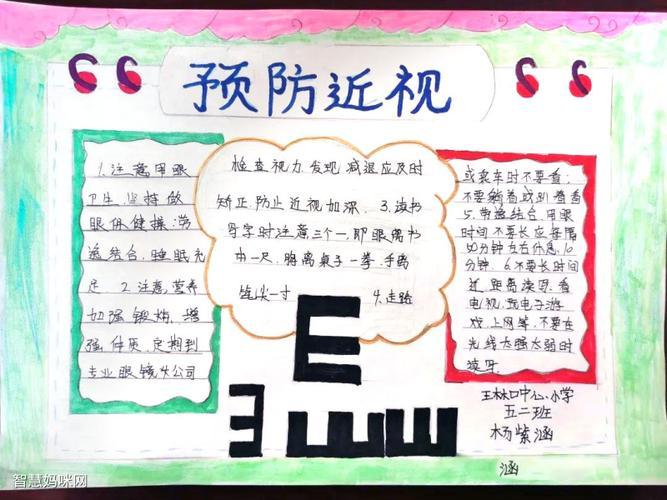 预防近视
1.注意用眼
卫生.坚持做
眼保健操.劳
逸结合.睡眠充
足 2.注意.营养
加强锻炼.增
强.体质.定期到
专业眼镜公司
检查视力.发现.减退应及时
矫正.防止近视加深. 3.读书
写字时注意三个一,即眼离书
本一尺.胸离桌子一拳.手离
笔尖一寸 4.走路
或乘车时不要看;
不要躺着或趴着看
5.劳逸结合.用眼
时间不要长应每隔
50分钟左右休息.10
分钟. 6.不要长时间
近.距离读写.看
电视.玩电子游
戏.上网等.不要在
光线太强太弱时
读写
E
王林口中心小学
五二班
杨紫涵
涵
智慧妈咪网